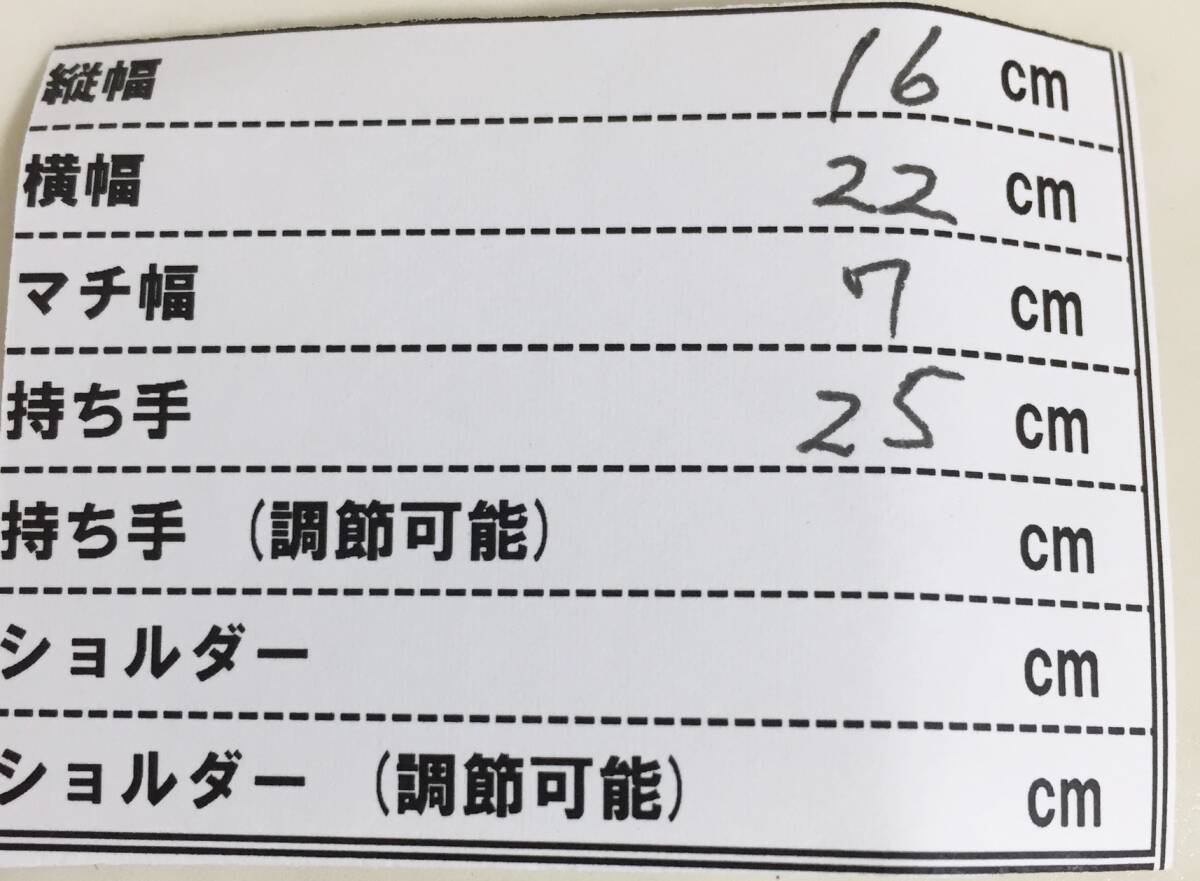 縦幅 16 cm
横幅 22 cm
マチ幅 7 cm
持ち手 25 cm
持ち手 (調節可能) cm
ショルダー cm
ショルダー (調節可能) cm